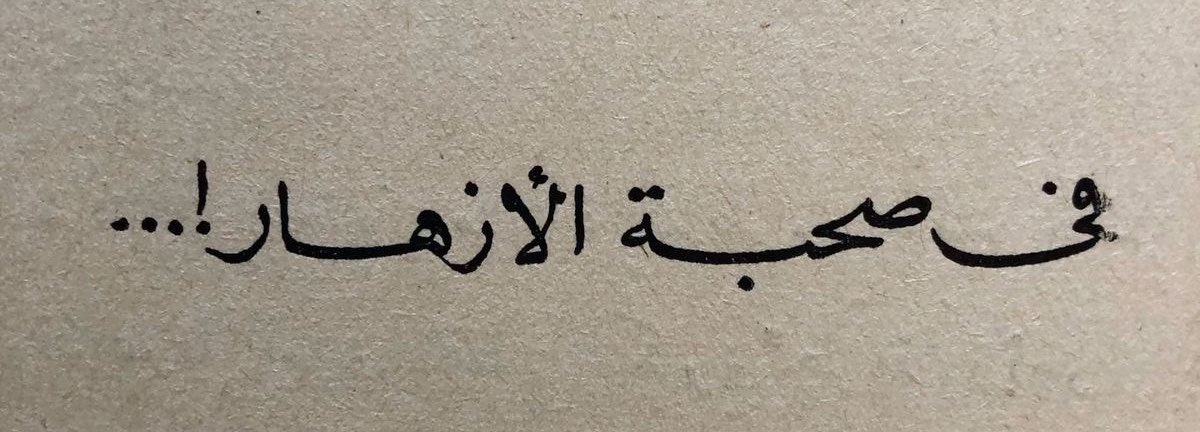 فى صحبة الأزهار!...